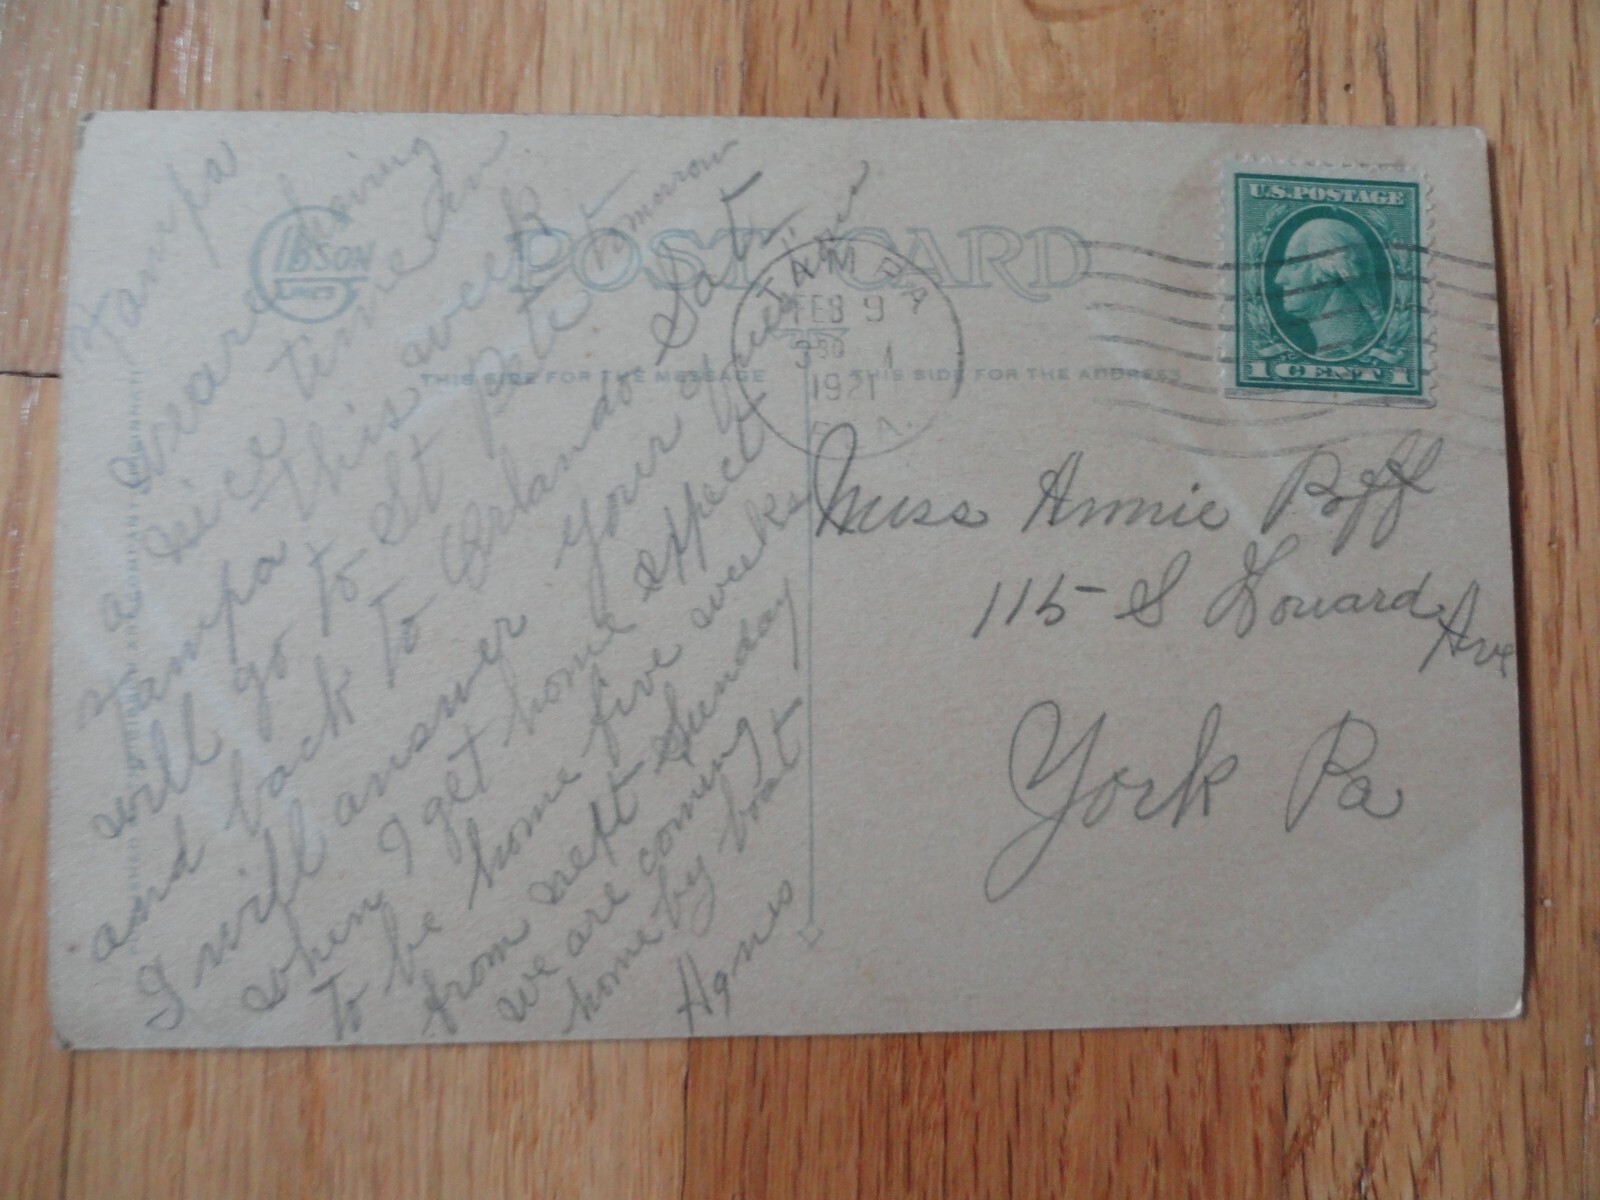 Tampa
We are having
a nice time in
Tampa this week
will go to St Pete tomorrow
and back to Orlando Sat.
I will answer your
when I get home expect
to be home five weeks
from next Sunday
we are coming
home by boat
Agnes
GIBSON
LINES
POST CARD
THIS SIDE FOR THE MESSAGE
THIS SIDE FOR THE ADDRESS
TAMPA
FEB 9
330
1921
FLA.
U.S. POSTAGE
1 CENT 1
Miss Annie Poff
115 S Howard Ave
York Pa